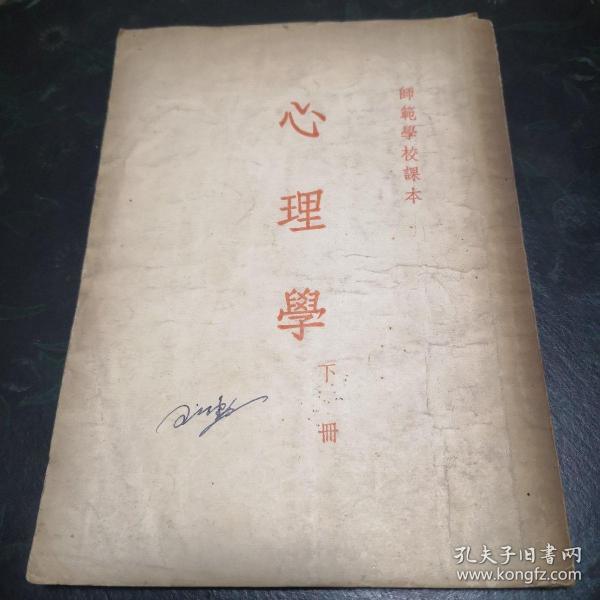 師範學校課本
心理學
下冊
孔夫子旧书网
www.kongfz.com